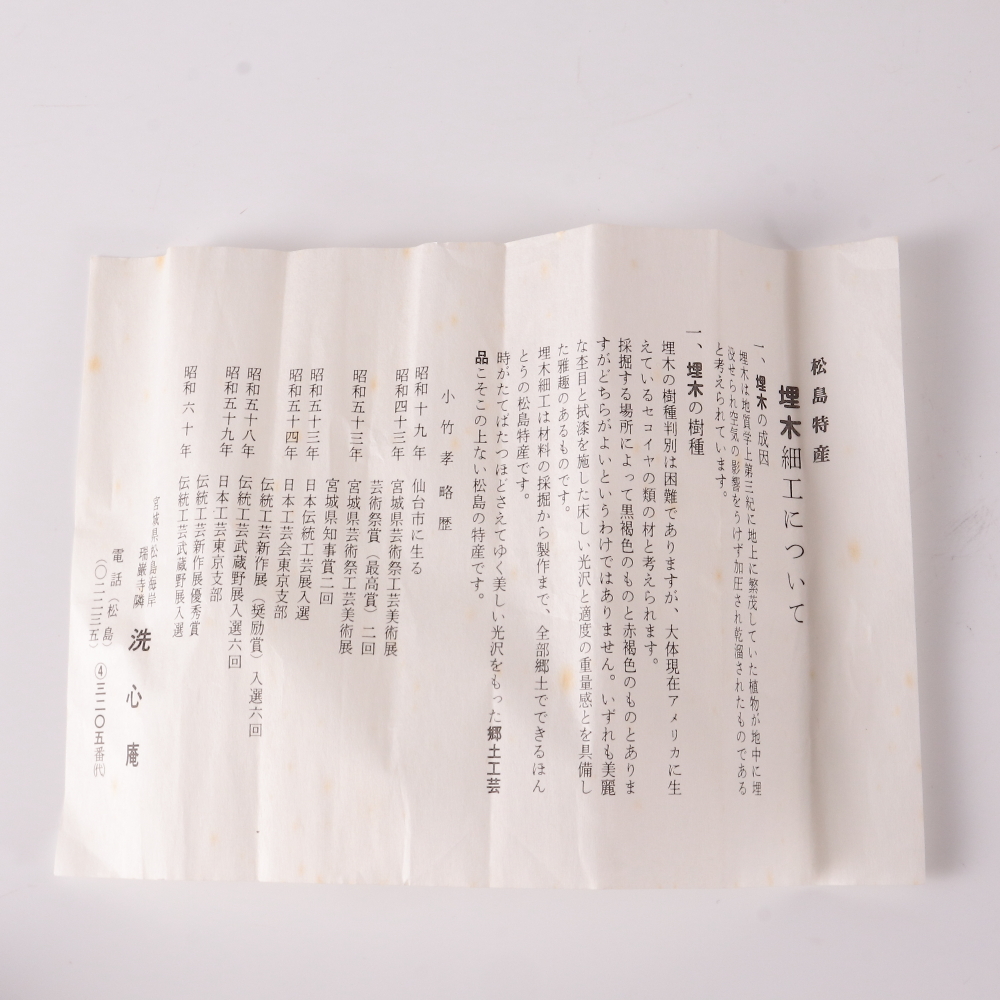 松島特産
埋木細工について
一、埋木の成因
埋木は地質学上第三紀に地上に繁茂していた植物が地中に埋
没せられ空気の影響をうけず加圧され乾溜されたものである
と考えられています。
一、埋木の樹種
埋木の樹種判別は困難でありますが、大体現在アメリカに生
えているセコイヤの類の材と考えられます。
採掘する場所によって黒褐色のものと赤褐色のものとありま
すがどちらがよいというわけではありません。いずれも美麗
な杢目と拭漆を施した床しい光沢と適度の重量感とを具備し
た雅趣のあるものです。
埋木細工は材料の採掘から製作まで、全部郷土でできるほん
とうの松島特産です。
時がたてばたつほどさえてゆく美しい光沢をもった郷土工芸
品こそこの上ない松島の特産です。
小竹孝略歴
昭和十九年 仙台市に生る
昭和四十三年 宮城県芸術祭工芸美術展
芸術祭賞（最高賞）二回
昭和五十三年 宮城県芸術祭工芸美術展
宮城県知事賞二回
昭和五十三年 日本伝統工芸展入選
昭和五十四年 日本工芸会東京支部
伝統工芸新作展（奨励賞）入選六回
昭和五十八年 伝統工芸武蔵野展入選六回
昭和五十九年 日本工芸東京支部
伝統工芸新作展優秀賞
昭和六十年 伝統工芸武蔵野展入選
宮城県松島海岸
瑞巌寺隣 洗心庵
電話（松島）④三二〇五番㈹
（〇二二三五）